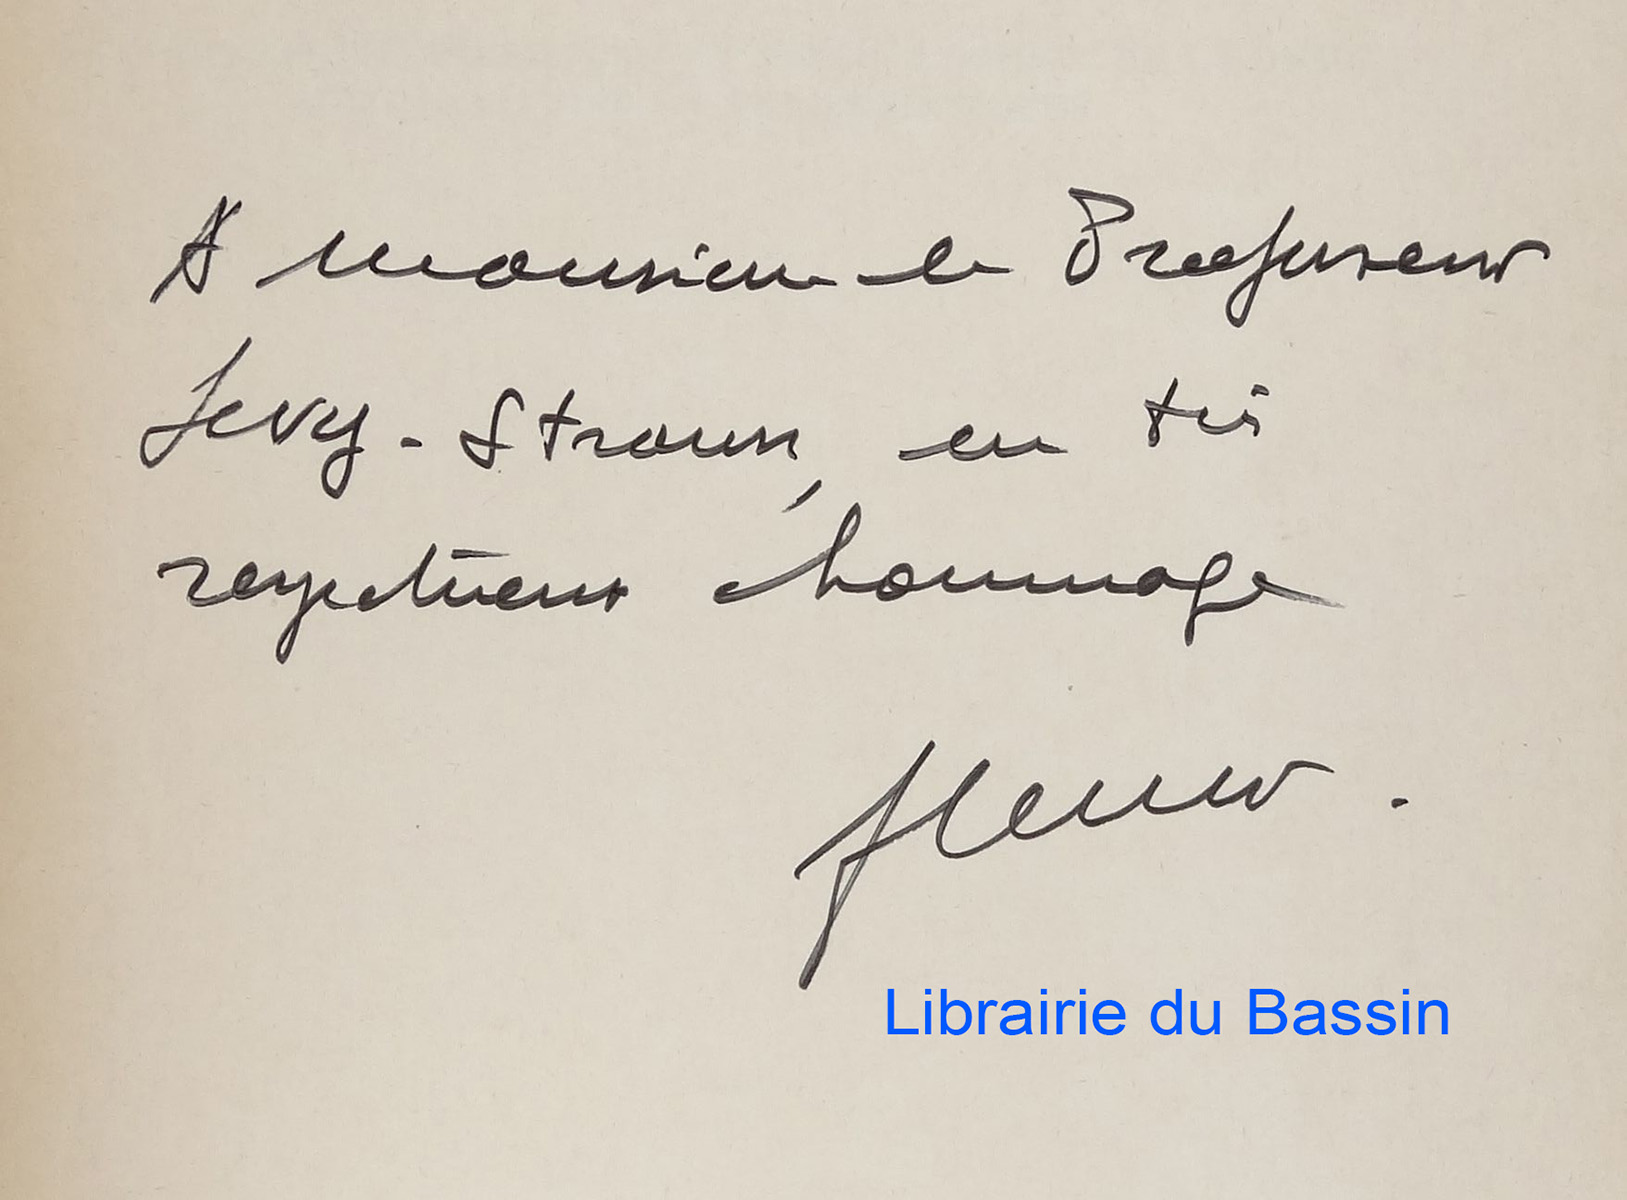 A Monsieur le Professeur
Levy-Strauss, en très
respectueux hommage
fleur.
Librairie du Bassin